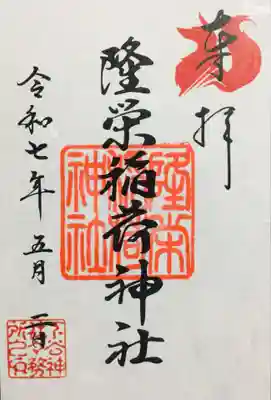 奉拝
隆栄稲荷神社
隆栄稲荷神社
令和七年 五月